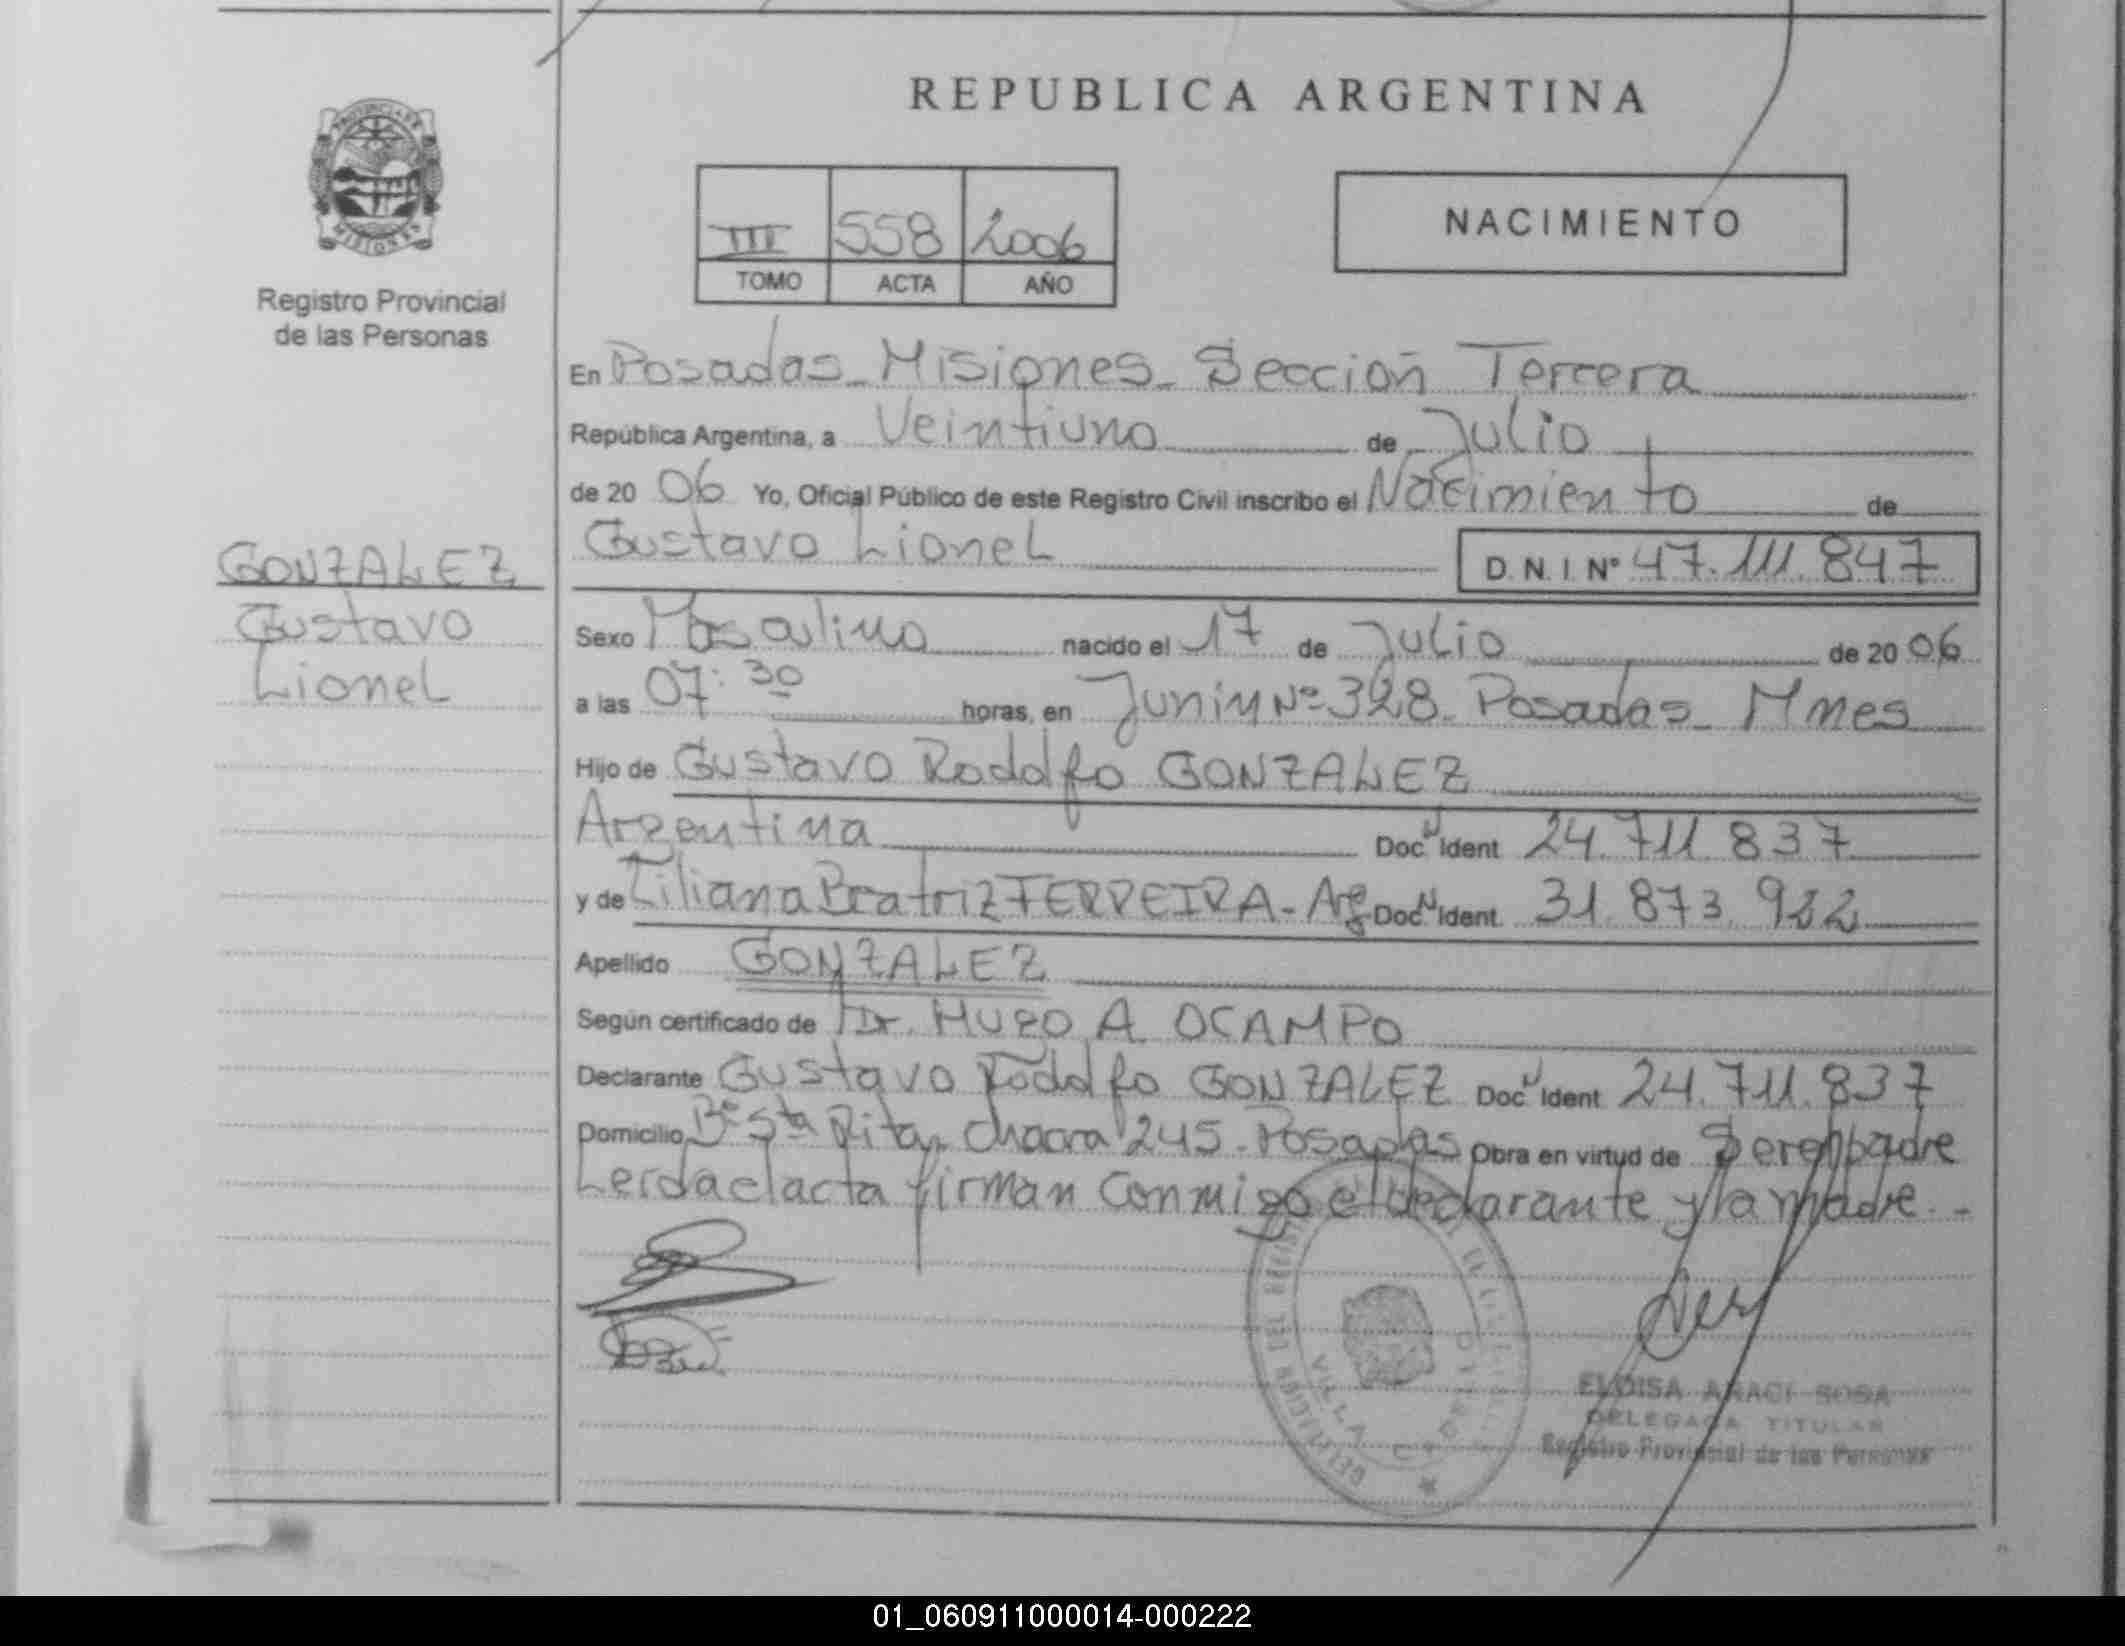 REPUBLICA ARGENTINA
PROVINCIA DE
MISIONES
Registro Provincial
de las Personas
III 558 2006
TOMO ACTA AÑO
NACIMIENTO
En Posadas - Misiones - Sección Tercera
República Argentina, a Veintiuno de Julio
de 20 06 Yo, Oficial Público de este Registro Civil inscribo el Nacimiento de
Gustavo Lionel D.N.I. Nº 47.111.847
GONZALEZ
Gustavo
Lionel
Sexo Masculino nacido el 17 de Julio de 20 06
a las 07:30 horas, en Junin Nº 328 - Posadas - Mnes
Hijo de Gustavo Rodolfo GONZALEZ
Argentina Doc N Ident 24.711.837
y de Liliana Beatriz FERREIRA - Arg Doc N Ident 31.873.982
Apellido GONZALEZ
Según certificado de Dr. HUGO A OCAMPO
Declarante Gustavo Rodolfo GONZALEZ Doc N Ident 24.711.837
Domicilio Bº Sta Rita, Chacra 245 - Posadas Obra en virtud de Ser el padre
Leida el acta firman conmigo el declarante y la madre.-
VILLA CABELLO
ELOISA ARACI SOSA
DELEGADA TITULAR
Registro Provincial de las Personas
01_060911000014-000222